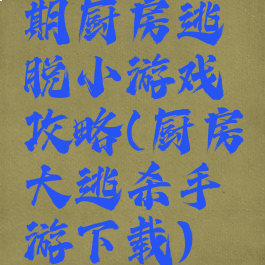 期厨房逃
脱小游戏
攻略(厨房
大逃杀手
游下载)